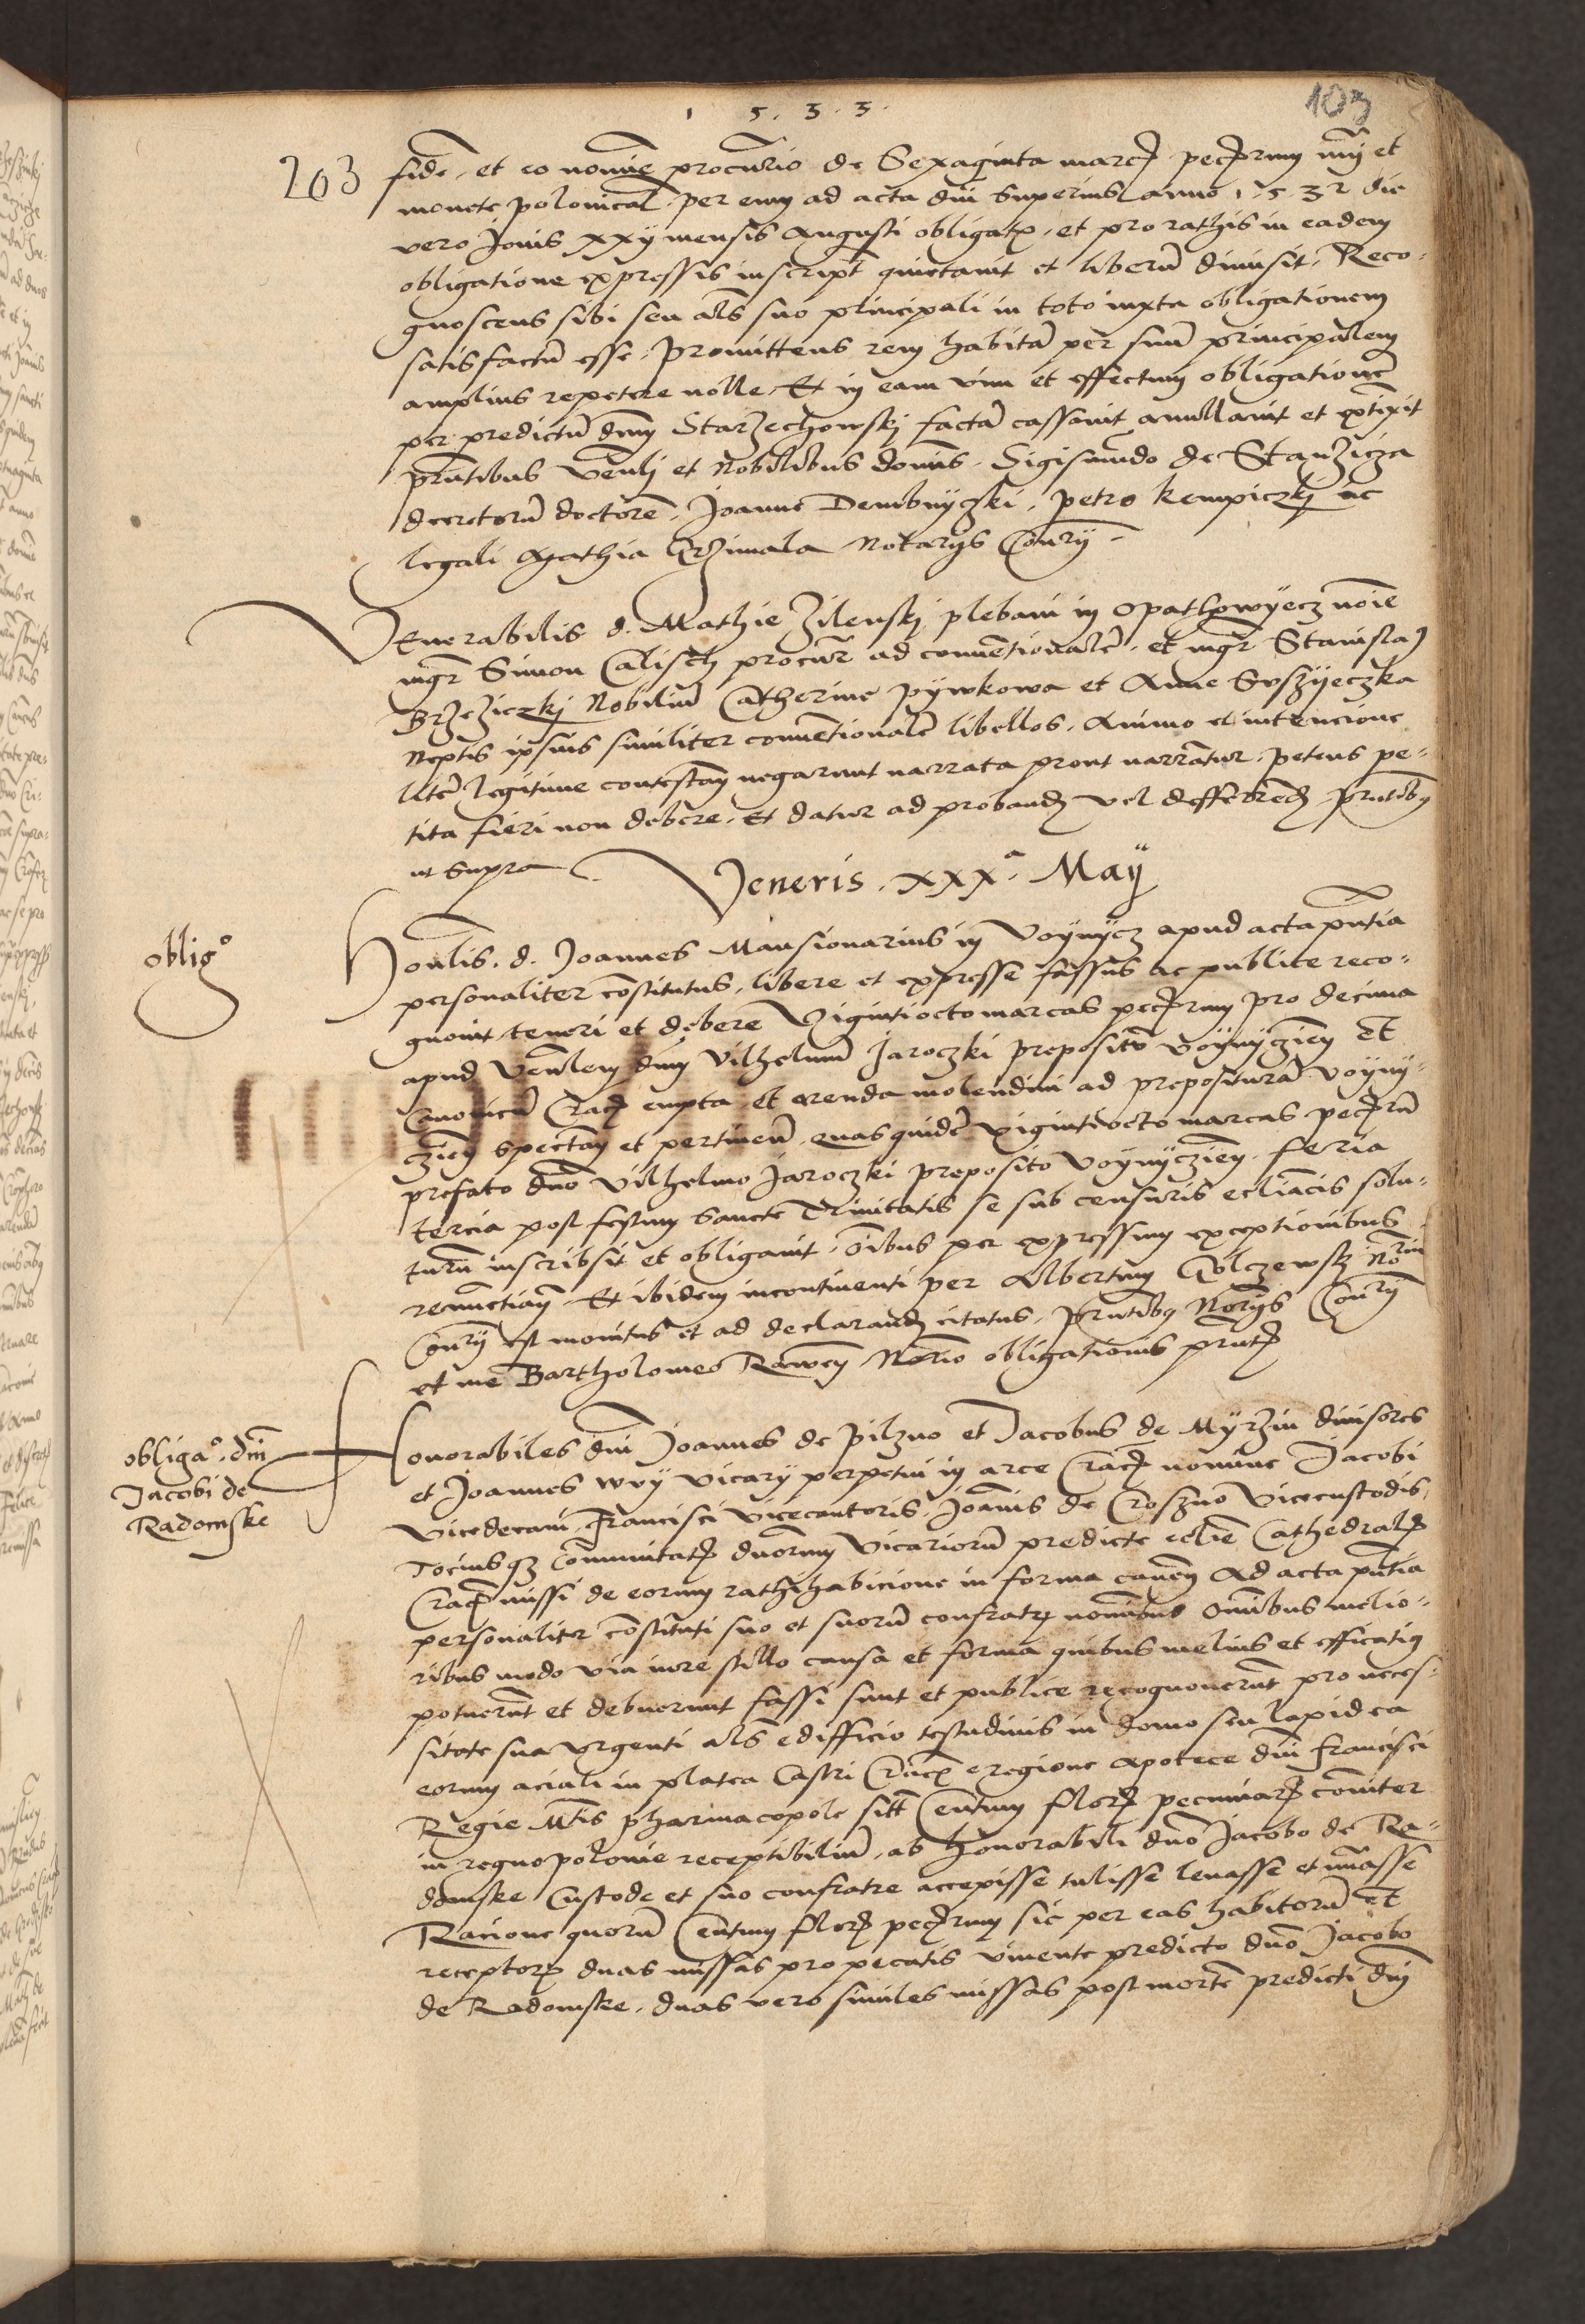 1 5 . 3 . 3 .
103
203
fide, et eo nomine procurio de Sexaginta marcis pecuniarum nri et
monete polonicalis per eum ad acta dni Superius anno 1.5.32 die
vero Jovis xxij mensis Augusti obligatis, et pro rathis in eadem
obligatione expressis inscript quietavit et liberum dimisit, Reco-
gnoscens sibi seu als suo principali in toto iuxta obligationem
satisfactum esse, Promittens rem habitam per suum principalem
amplius repetere nolle, Et in eam vim et effectum obligationem
per predictum dnum Starzechowskj factam cassavit annullavit et extinxit
pntibus Venlj et Nobilibus dominis, Sigismundo de Stanzicza
decretorum doctore, Joanne Dembnyczki, petro kempiczkj ac
legali Mathia Grzimala Notarijs Conrij
Venerabilis d. Mathie Zilenskj plebani in Opathowyecz noie
mgr Simon Calisch procur ad conventionalem, et mgr Stanislaus
Brzeziczkj Nobilium Catherine pywkowa et Anne Soszyeczka
Neptis ipsius similiter conventionalem libellos, Animo et intencione
litem legitime contestan negarunt narrata prout narrantur, petens pe-
tita fieri non debere, Et datur ad proband vel defferend pntibus
ut supra
Veneris . xxxa. Maij
obligo
Honlis. d. Joannes Mansionarius in Voynycz apud acta pntia
personaliter constitutus, libere et expresse fassus ac publice reco-
gnovit teneri et debere Vigintiocto marcas pecuniarum pro decima
apud Venlem dnum Vilhelmum Jaroczki prepositum Voynyczien Et
Canonicum Crac empta et arenda molendini ad preposituram Voyny-
czien spectan et pertinen, quas quidem vigintiocto marcas pecuniarum
prefato dno Vilhelmo Jaroczki preposito Voynyczien, feria
tercia post festum Sancte Trinitatis se sub censuris eccliacis solu-
turum inscribsit et obligavit, oibus per expressum exceptionibus
renunctian, Et ibidem incontinenti per Albertum Golczewskj Norium
Conrij est monitus et ad declarand citatus, pntibus Norijs Conrij
et me Bartholomeo Rawen Norio obligationis pntis
obligao. dni
Jacobi de
Radomske
Honorabiles dni Joannes de pilzno et Jacobus de Myrzin divisores
et Joannes wry Vicarij perpetui in arce Crac nomine Jacobi
Vicedecani, Francisci Vicecantoris, Joannis de Croszno Vicecustodis,
Tociusque Communitatis dnorum Vicariorum predicte ecclie Cathedralis
Crac missi de eorum rathihabicione in forma caven Ad acta pntia
personaliter constituti suo et suorum confratrum nominibus omnibus melio-
ribus modo via iure stillo causa et forma quibus melius et efficatius
potuerunt et debuerunt fassi sunt et publice recognoverunt pro neces-
sitate sua urgenti als edifficio testudinis in domo seu lapidea
eorum aciali in platea Castri Crac e regione apotece dni francisci
Regie Mtis pharmacopole sitt Centum floris pecuniaris comiter
in regno polonie receptibilium, ab honorabili dno Jacobo de Ra-
domske Custode et suo confratre accepisse tulisse levasse et numerasse
Racione quorum Centum floris pecuniarum sic per eas habitorum et
receptorum duas missas pro pecatis vivente predicto dno Jacobo
de Radomske, duas vero similes missas post mortem predicti dni